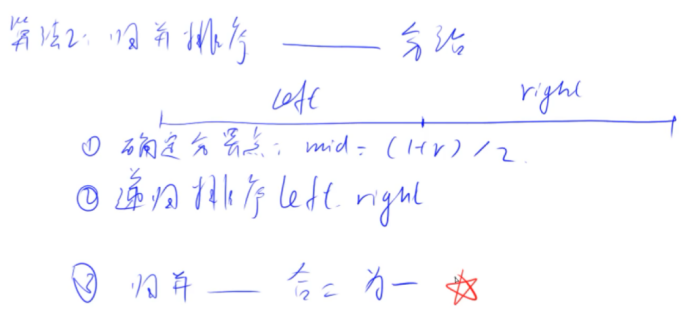 算法2：归并排序 —— 分治
left right
① 确定分界点：mid = (l+r)/2
② 递归排序 left right
③ 归并 —— 合二为一 ☆